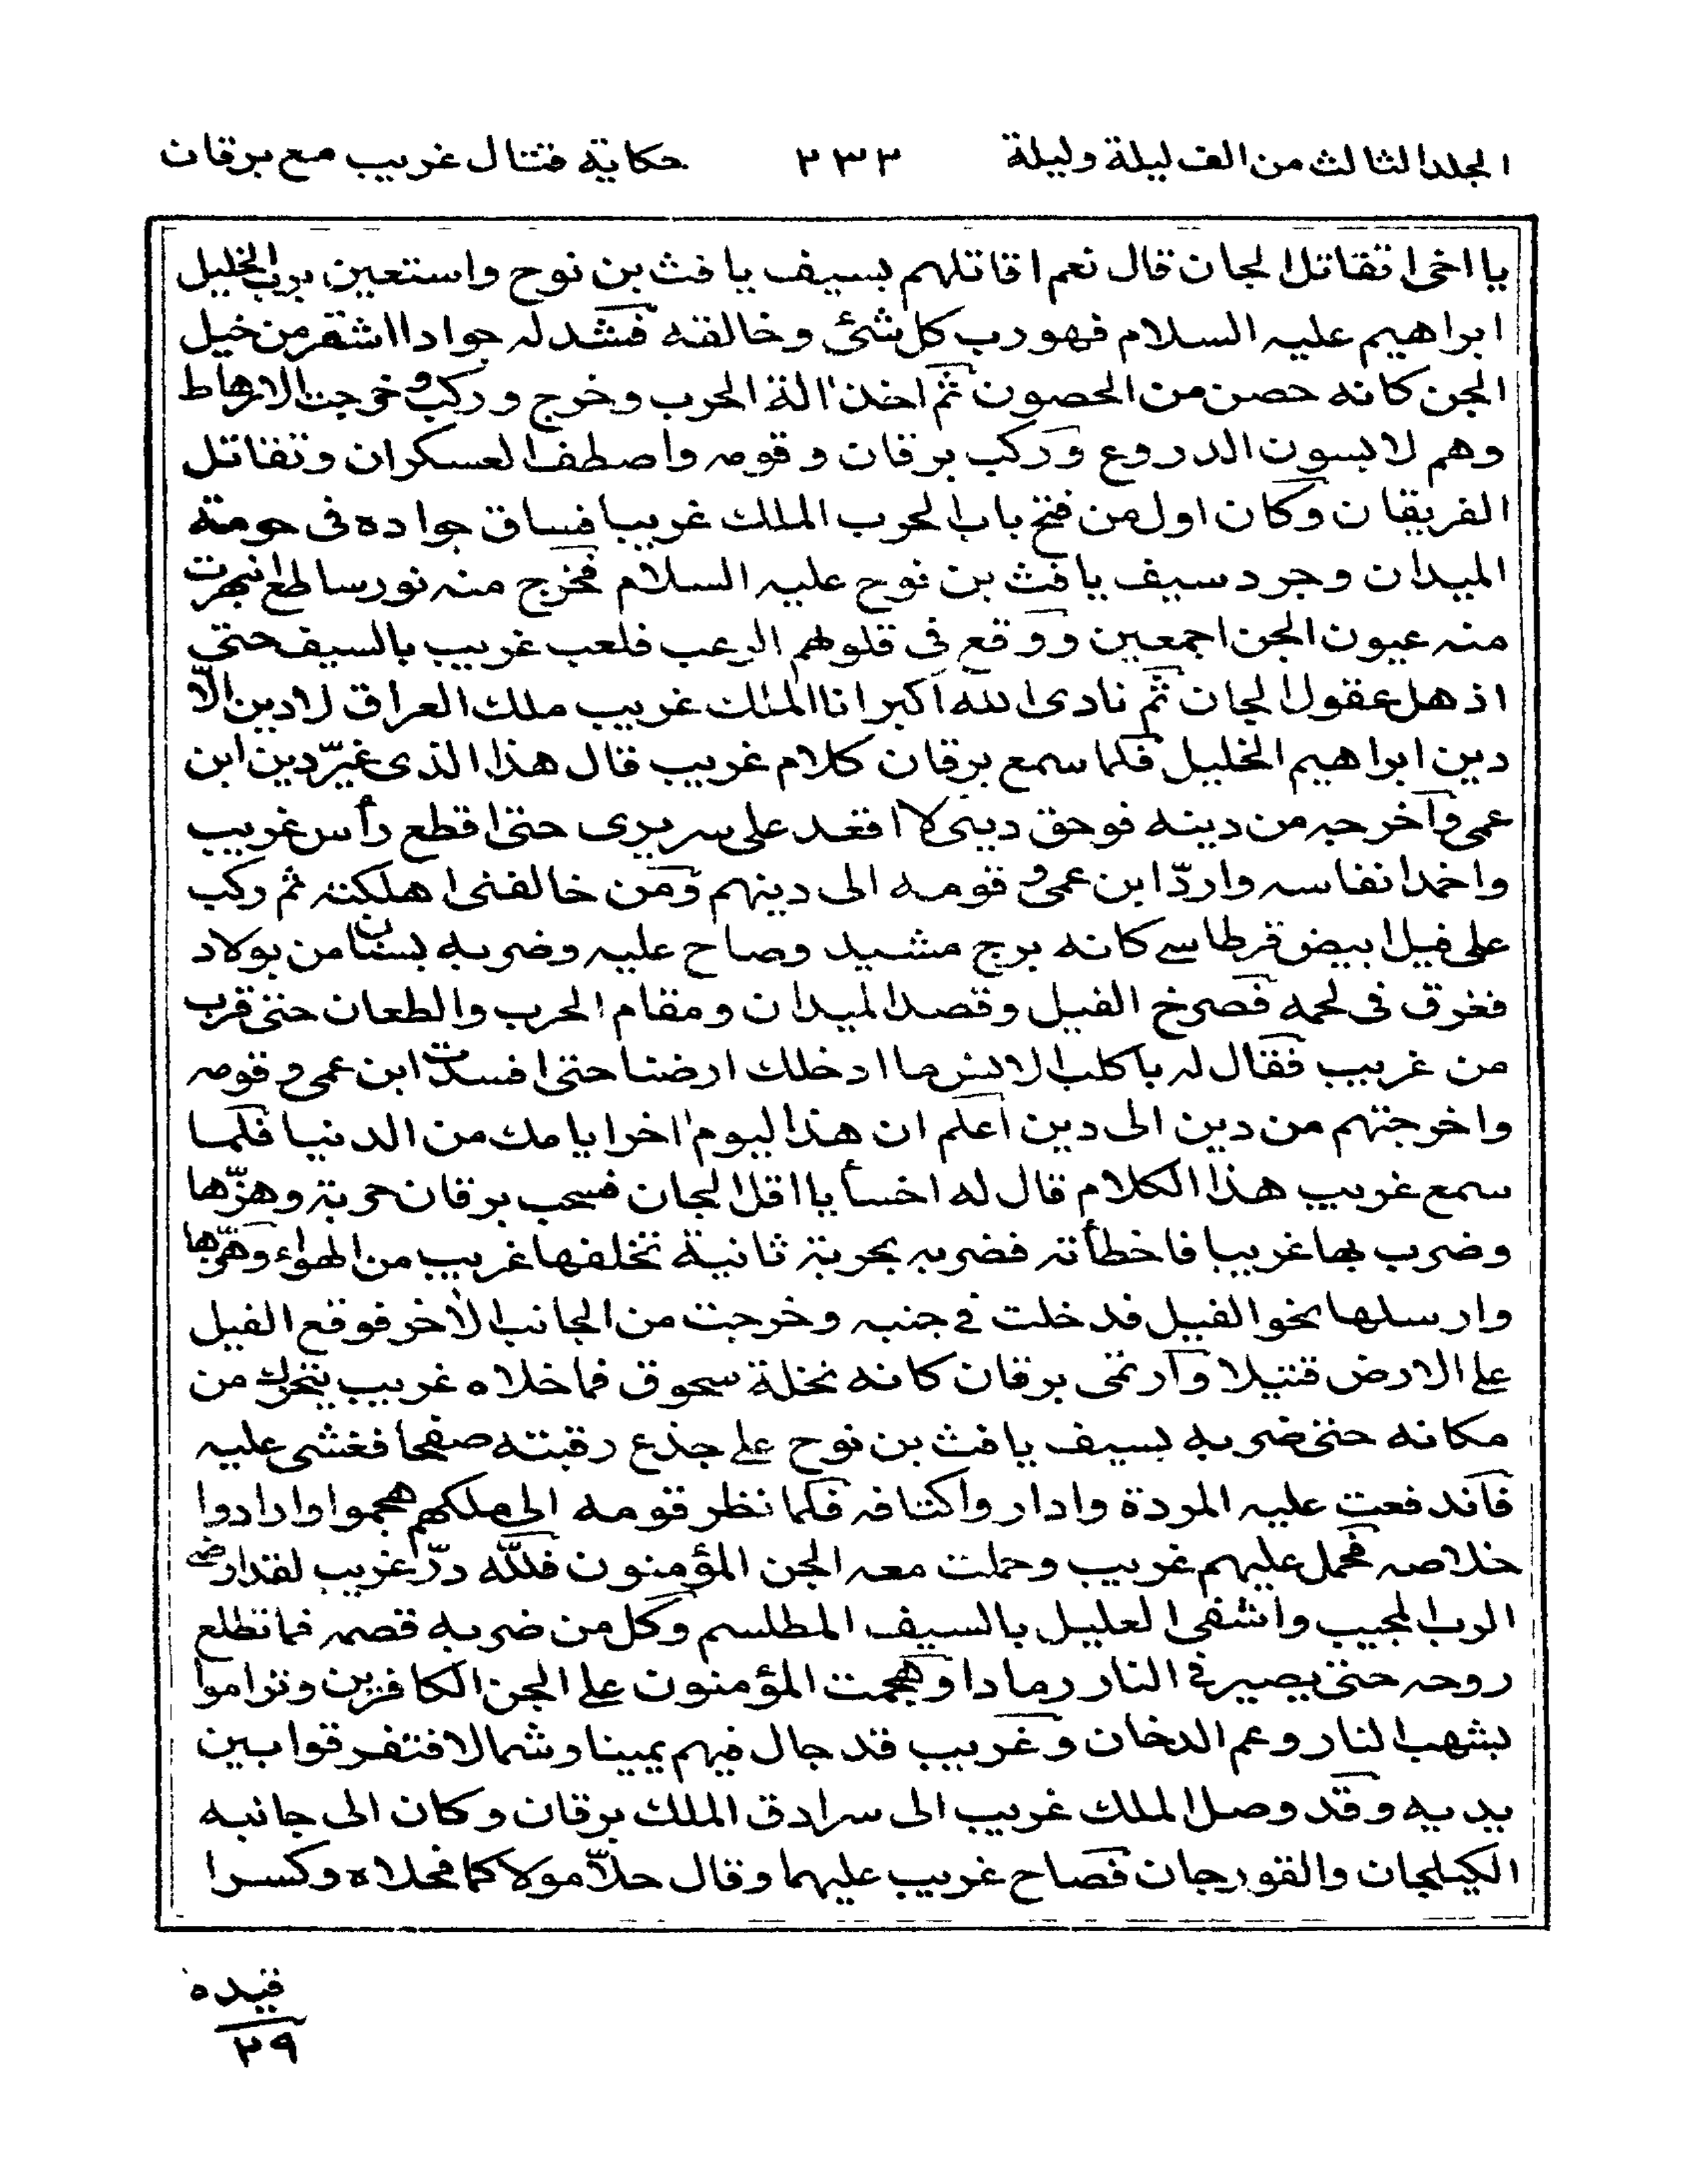 المجلد الثالث من الف ليلة وليلة ٢٣٣ حكاية قتال غريب مع برقان
يا اخى اتقاتل الجان قال نعم اقاتلهم بسيف يافث بن نوح واستعين برب الخليل
ابراهيم عليه السلام فهو رب كل شئ وخالقه فشد له جوادا اشقر من خيل
الجن كانه حصن من الحصون ثم اخذ الة الحرب وخرج وركب وخرجت الارهاط
وهم لابسون الدروع وركب برقان وقومه واصطف العسكران وتقاتل
الفريقان وكان اول من فتح باب الحرب الملك غريبا فساق جواده فى حومة
الميدان وجرد سيف يافث بن نوح عليه السلام فخرج منه نور ساطع انبهرت
منه عيون الجن اجمعين ووقع فى قلوبهم الرعب فلعب غريب بالسيف حتى
اذهل عقول الجان ثم نادى الله اكبر انا الملك غريب ملك العراق لا دين الّا
دين ابراهيم الخليل فلما سمع برقان كلام غريب قال هذا الذى غيّر دين ابن
عمى واخرجه من دينه فوحق دينى لا اقعد على سريرى حتى اقطع رأس غريب
واخمد انفاسه واردّ ابن عمى و قومه الى دينهم ومن خالفنى اهلكته ثم ركب
على فيل ابيض قرطاسے كانه برج مشيد وصاح عليه وضربه بسنان من بولاد
فغرق فى لحمه فصرخ الفيل وقصد الميدان ومقام الحرب والطعان حتى قرب
من غريب فقال له يا كلب الانس ما ادخلك ارضنا حتى افسدت ابن عمى و قومه
واخرجتهم من دين الى دين اعلم ان هذا اليوم اخر ايامك من الدنيا فلما
سمع غريب هذا الكلام قال له اخسأ يا اقل الجان فسحب برقان حربة وهزّها
وضرب بها غريبا فاخطأته فضربه بحربة ثانية تخلفها غريب من الهواء وهزّها
وارسلها نحو الفيل فدخلت فى جنبه وخرجت من الجانب الاخر فوقع الفيل
على الارض قتيلا وارتمى برقان كانه نخلة سحوق فما خلاه غريب يتحرك من
مكانه حتى ضربه بسيف يافث بن نوح على جذع رقبته صفحا فغشى عليه
فاندفعت عليه المردة وادار واكتافه فلما نظر قومه الى ملكهم هجموا وارادوا
خلاصه فحمل عليهم غريب وحملت معه الجن المؤمنون فللّه درّ غريب لقد ارضى
الرب المجيب واشفى العليل بالسيف المطلسم وكل من ضربه قصمه فما تطلع
روحه حتى يصير فى النار رمادا وهجمت المؤمنون على الجن الكافرين وتراموا
بشهب النار وعم الدخان وغريب قد جال فيهم يمينا وشمالا فتفرقوا بين
يديه وقد وصل الملك غريب الى سرادق الملك برقان وكان الى جانبه
الكيلجان والقورجان فصاح غريب عليهما وقال حلاّ مولاكما فحلاه وكسرا
قيده
٢٩